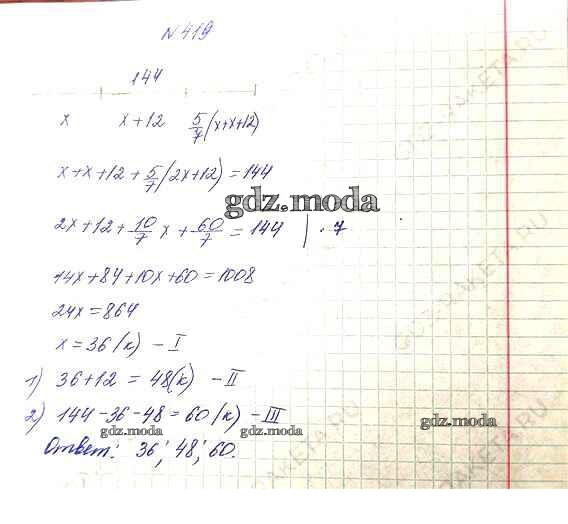 № 419
144
x x+12 5/7(x+x+12)
x+x+12+5/7(2x+12)=144
gdz.moda
2x+12+10/7x+60/7=144 | · 7
14x+84+10x+60=1008
24x=864
x=36(к) – I
1) 36+12=48(к) – II
2) 144-36-48=60(к) – III
gdz.moda gdz.moda gdz.moda
Ответ: 36; 48; 60.
GDZ-RAKETA.RU
GDZ-RAKETA.RU
GDZ-RAKETA.RU